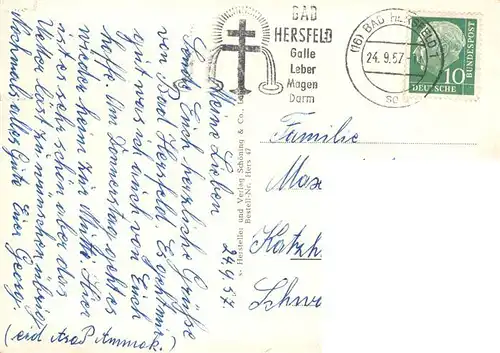 BAD
HERSFELD
Galle
Leber
Magen
Darm
(16) BAD HERSFELD 1
24.9.57
10
DEUTSCHE
BUNDESPOST
Familie
Max
Katzh
Schw
Hersteller und Verlag Schöning & Co.
Bestell-Nr. Hers 47
24.9.57
Meine Lieben
Sende Euch herzliche Grüße
von Bad Hersfeld. Es geht mir
gut was ich auch von Euch
hoffe. Am Donnerstag geht es
wieder heim zu Mutti. Hier
ist es sehr schön aber das
Wetter läst zu wünschen übrig.
Nochmals alles Gute Euer Georg.